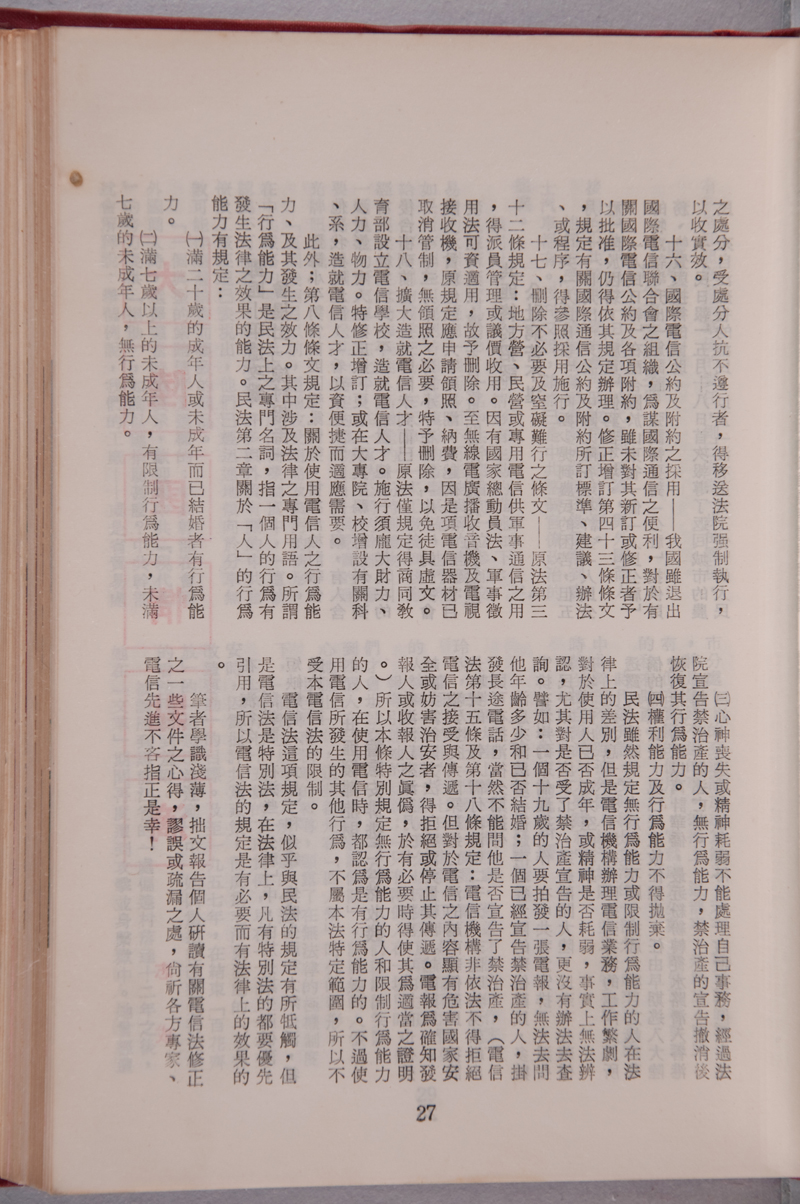 之處分，受處分人抗不遵行者，得移送法院强制執行，
以收實效。
十六、國際電信公約及附約之採用——我國雖退出
國際電信聯合會之組織，爲謀國際通信之便利，對於有
關國際電信公約及各項附約，雖未對其新訂或修正者予
以批准，仍得依其規定辦理。修正增訂第四十三條條文
，規定有關國際通信公約及附約所訂標準、建議、辦法
、或程序，得參照採用施行。
十七、刪除不必要及窒礙難行之條文——原法第三
十二條規定：地方營、民營或專用電信供軍事通信之用
，得派員管理或議價收用。因有國家總動員法、軍事徵
用法可資適用，故予刪除。至無線電廣播收音機及電視
接收機，原規定應申請領照、納費，因是項電信器材已
取消管制，無領照之必要，特予刪除，以免徒具虛文。
十八、擴大造就電信人才——原法僅規定得商同敎
育部設立電信學校，造就電信人才。施行須龐大財力、
人力、物力。特修正增訂；或在大專院、校增設有關科
、系，造就電信人才，以資便捷而適應需要。
此外；第八條條文規定：關於使用電信人之行爲能
力、及其發生之效力。其中涉及法律之專門用語。所謂
「行爲能力」是民法上之專門名詞，指一個人的行爲有
發生法律之效果的能力。民法第二章關於「人」的行爲
能力有規定：
㈠滿二十歲的成年人或未成年而已結婚者有行爲能
力。
㈡滿七歲以上的未成年人，有限制行爲能力，未滿
七歲的未成年人，無行爲能力。
㈢心神喪失或精神耗弱不能處理自己事務，經過法
院宣告禁治產的人，無行爲能力，禁治產的宣告撤消後
恢復其行爲能力。
㈣權利能力及行爲能力不得拋棄。
民法雖然規定無行爲能力或限制行爲能力的人在法
律上的差別，但是電信機構辦理電信業務，工作繁劇，
對於使用人已否成年，或精神是否耗弱，事實上無法辨
認，尤其對是否受了禁治產宣告的人，更沒有辦法去查
詢。譬如：一個十九歲的人要拍發一張電報，無法去問
他年齡多少和已否結婚；一個已經宣告禁治產的人，掛
發長途電話，當然不能問他是否宣告了禁治產，（電信
法第十五條及第十八條規定：電信機構非依法不得拒絕
電信之接受與傳遞。但對於電信之內容顯有危害國家安
全或妨害治安者，得拒絕或停止其傳遞。電報爲確知發
報人或收報人之眞僞，於有必要時得使其爲適當之證明
。）所以本條特別規定無行爲能力的人和限制行爲能力
的人，在使用電信時，都認爲是有行爲能力的。不過使
用電信所發生的其他行爲，不屬本法特定範圍，所以不
受本電信法的限制。
電信法這項規定，似乎與民法的規定有所牴觸，但
是電信法是特別法，在法律上，凡有特別法的都要優先
引用，所以電信法的規定是有必要而有法律上的效果的
。
筆者學識淺薄，拙文報告個人研讀有關電信法修正
之一些文件之心得，謬誤或疏漏之處，尙祈各方專家、
電信先進不吝指正是幸！
27